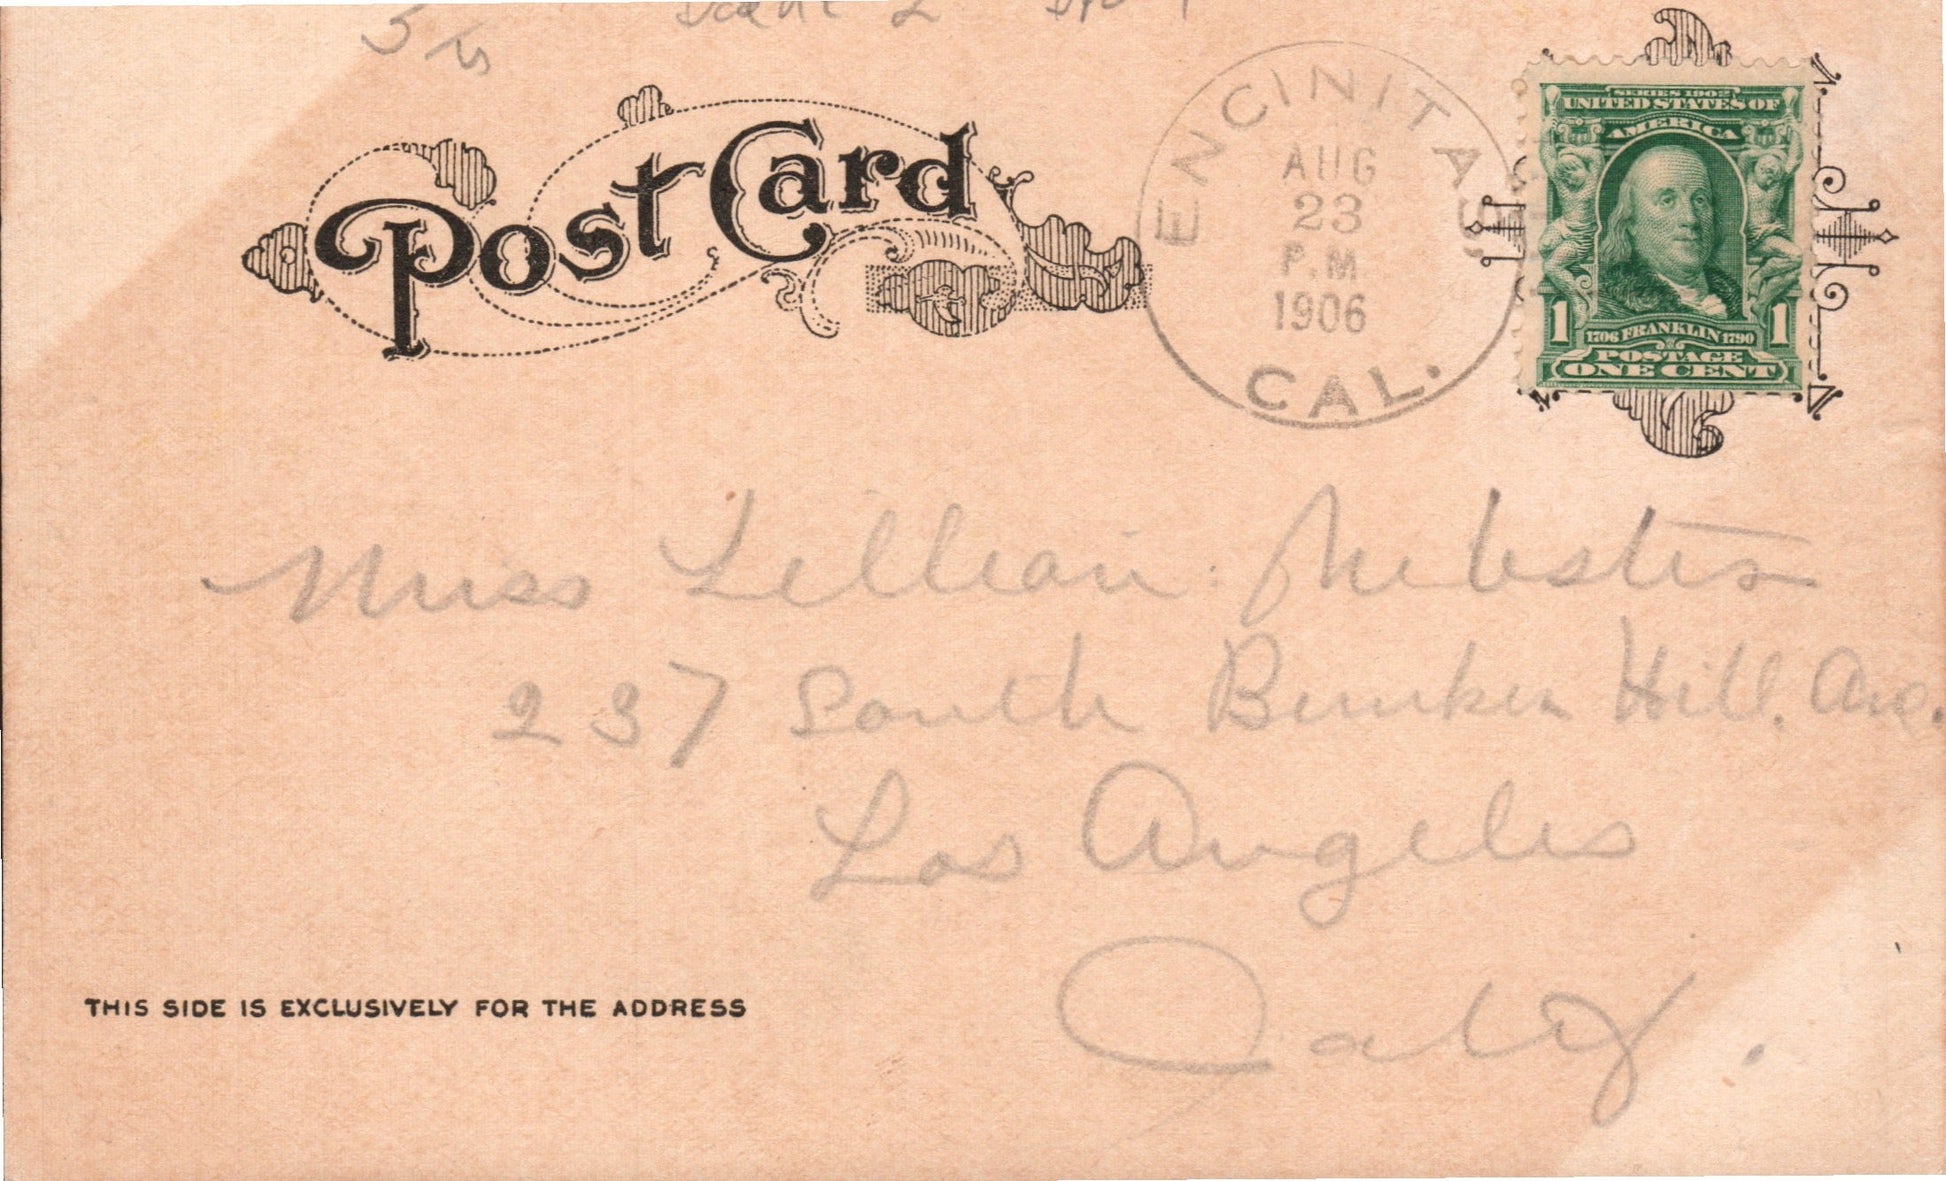 Post Card
ENCINITAS, CAL.
AUG
23
P.M.
1906
SERIES 1902
UNITED STATES OF
AMERICA
1 1706 FRANKLIN 1790 1
POSTAGE
ONE CENT
Miss Lillian Webster
237 South Bunker Hill. Ave.
Los Angeles
Calif.
THIS SIDE IS EXCLUSIVELY FOR THE ADDRESS